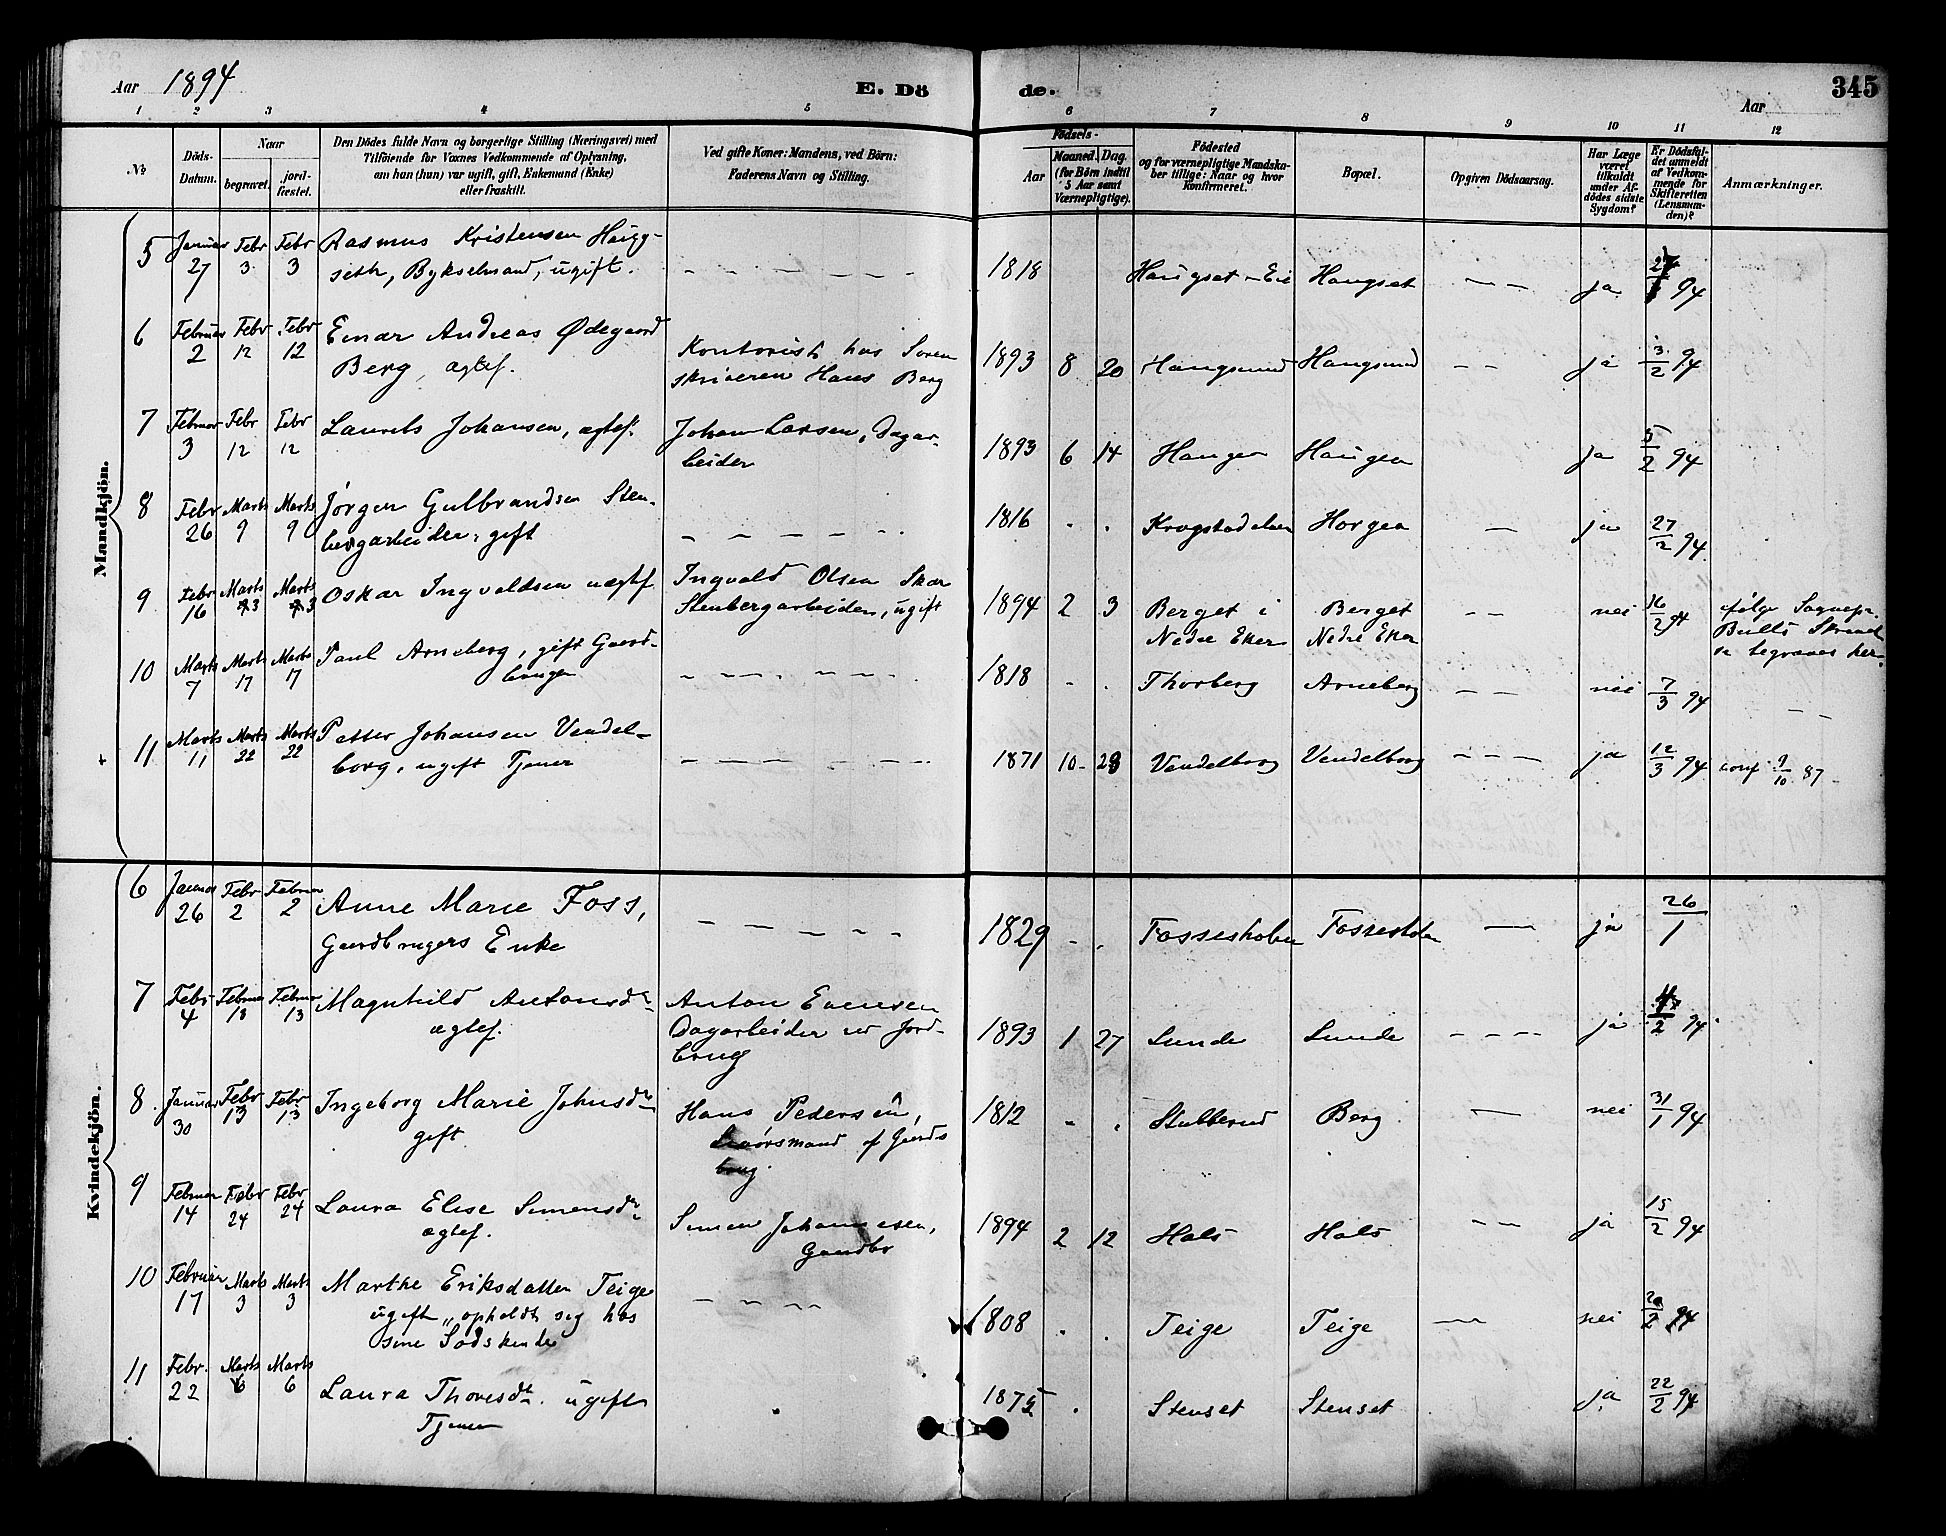 Aar 1894
E. Dö
de.
Aar
345
1 2 3 4 5 6 7 8 9 10 11 12
№
Döds-Datum.
Naar
begravet.
jordfæstet.
Den Dödes fulde Navn og borgerlige Stilling (Næringsvei) med
Tilföiende for Voxnes Vedkommende af Oplysning,
om han (hun) var ugift, gift, Enkemand (Enke)
eller fraskilt.
Ved gifte Koner: Mandens, ved Börn:
Faderens Navn og Stilling.
Födsels-
Aar
Maaned. Dag.
(for Börn indtil
5 Aar samt
Værnepligtige).
Födested
og for værnepligtige Mandska-
ber tillige: Naar og hvor
konfirmeret.
Bopæl.
Opgiven Dödsaarsag.
Har Læge
været
tilkaldt
under Af-
dödes sidste
Sygdom?
Er Dödsfal-
det anmeldt
af Vedkom-
mende for
Skifteretten
(Lensman-
den)?
Anmærkninger.
Mandkjön.
5 Januar 27 Febr 3 Febr 3 Rasmus Kristensen Haug-
seth, Bykselmand, ugift. 1818 Haugset-Eie Haugset ja 94
6 Februar 2 Febr 12 Febr 12 Einar Andreas Ødegaard
Berg, ægtef. Kontorist hos Soren-
skriveren Hans Berg 1893 8 20 Haugsund Haugsund ja 3/2 94
7 Februar 3 Febr 12 Febr 12 Laurits Johansen, ægtef. Johan Larsen, Dagar-
beider 1893 6 14 Haugen Haugen ja 5/2 94
8 Febr 26 Marts 9 Marts 9 Jørgen Gulbrandsen Sten-
bergarbeider, gift 1816 Krogstadelven Horgen ja 27/2 94
9 Febr 16 Marts 3 Marts 3 Oskar Ingvaldsen uægtef. Ingvald Olsen Skar
Stenbergarbeider, ugift 1894 2 3 Berget i
Nedre Eker Berget
Nedre Eker nei 16/2 94 ifølge Sognepr.
Bulls
begraves her.
10 Marts 7 Marts 17 Marts 17 Paul Arneberg, gift Gaard-
bruger 1818 Thorberg Arneberg nei 7/3 94
11 Marts 11 Marts 22 Marts 22 Petter Johansen Vendel-
borg, ugift Tjener 1871 10 28 Vendelborg Vendelborg ja 12/3 94 conf 9/10 87
Kvindekjön.
6 Januar 26 Febr 2 Februar 2 Anne Marie Foss,
Gaardbrugers Enke 1829 Fossesholm ja 26/1
7 Febr 4 Februar 13 Februar 13 Magnhild Antonsdr
ægtef. Anton Evensen
Dagarbeider ved Jord-
brug 1893 1 27 Sunde Sunde ja 4/2 94
8 Januar 30 Febr 13 Febr 13 Ingeborg Marie Johnsdr
gift Hans Pedersen,
af Gaards
brug. 1812 Stubberud Berg nei 31/1 94
9 Februar 14 Febr 24 Febr 24 Laura Elise Simensdr
ægtef. Simen Johannesen,
Gaardbr 1894 2 12 Hals Hals ja 15/2 94
10 Februar 17 Marts 3 Marts 3 Marthe Eriksdatter Teige
ugift, opholdt sig hos
sine Sødskende 1808 Teige Teige nei 20/2 94
11 Febr. 22 Marts 6 Marts 6 Laura Thoresdr. ugift
Tjener 1875 Stenset Stenset ja 22/2 94